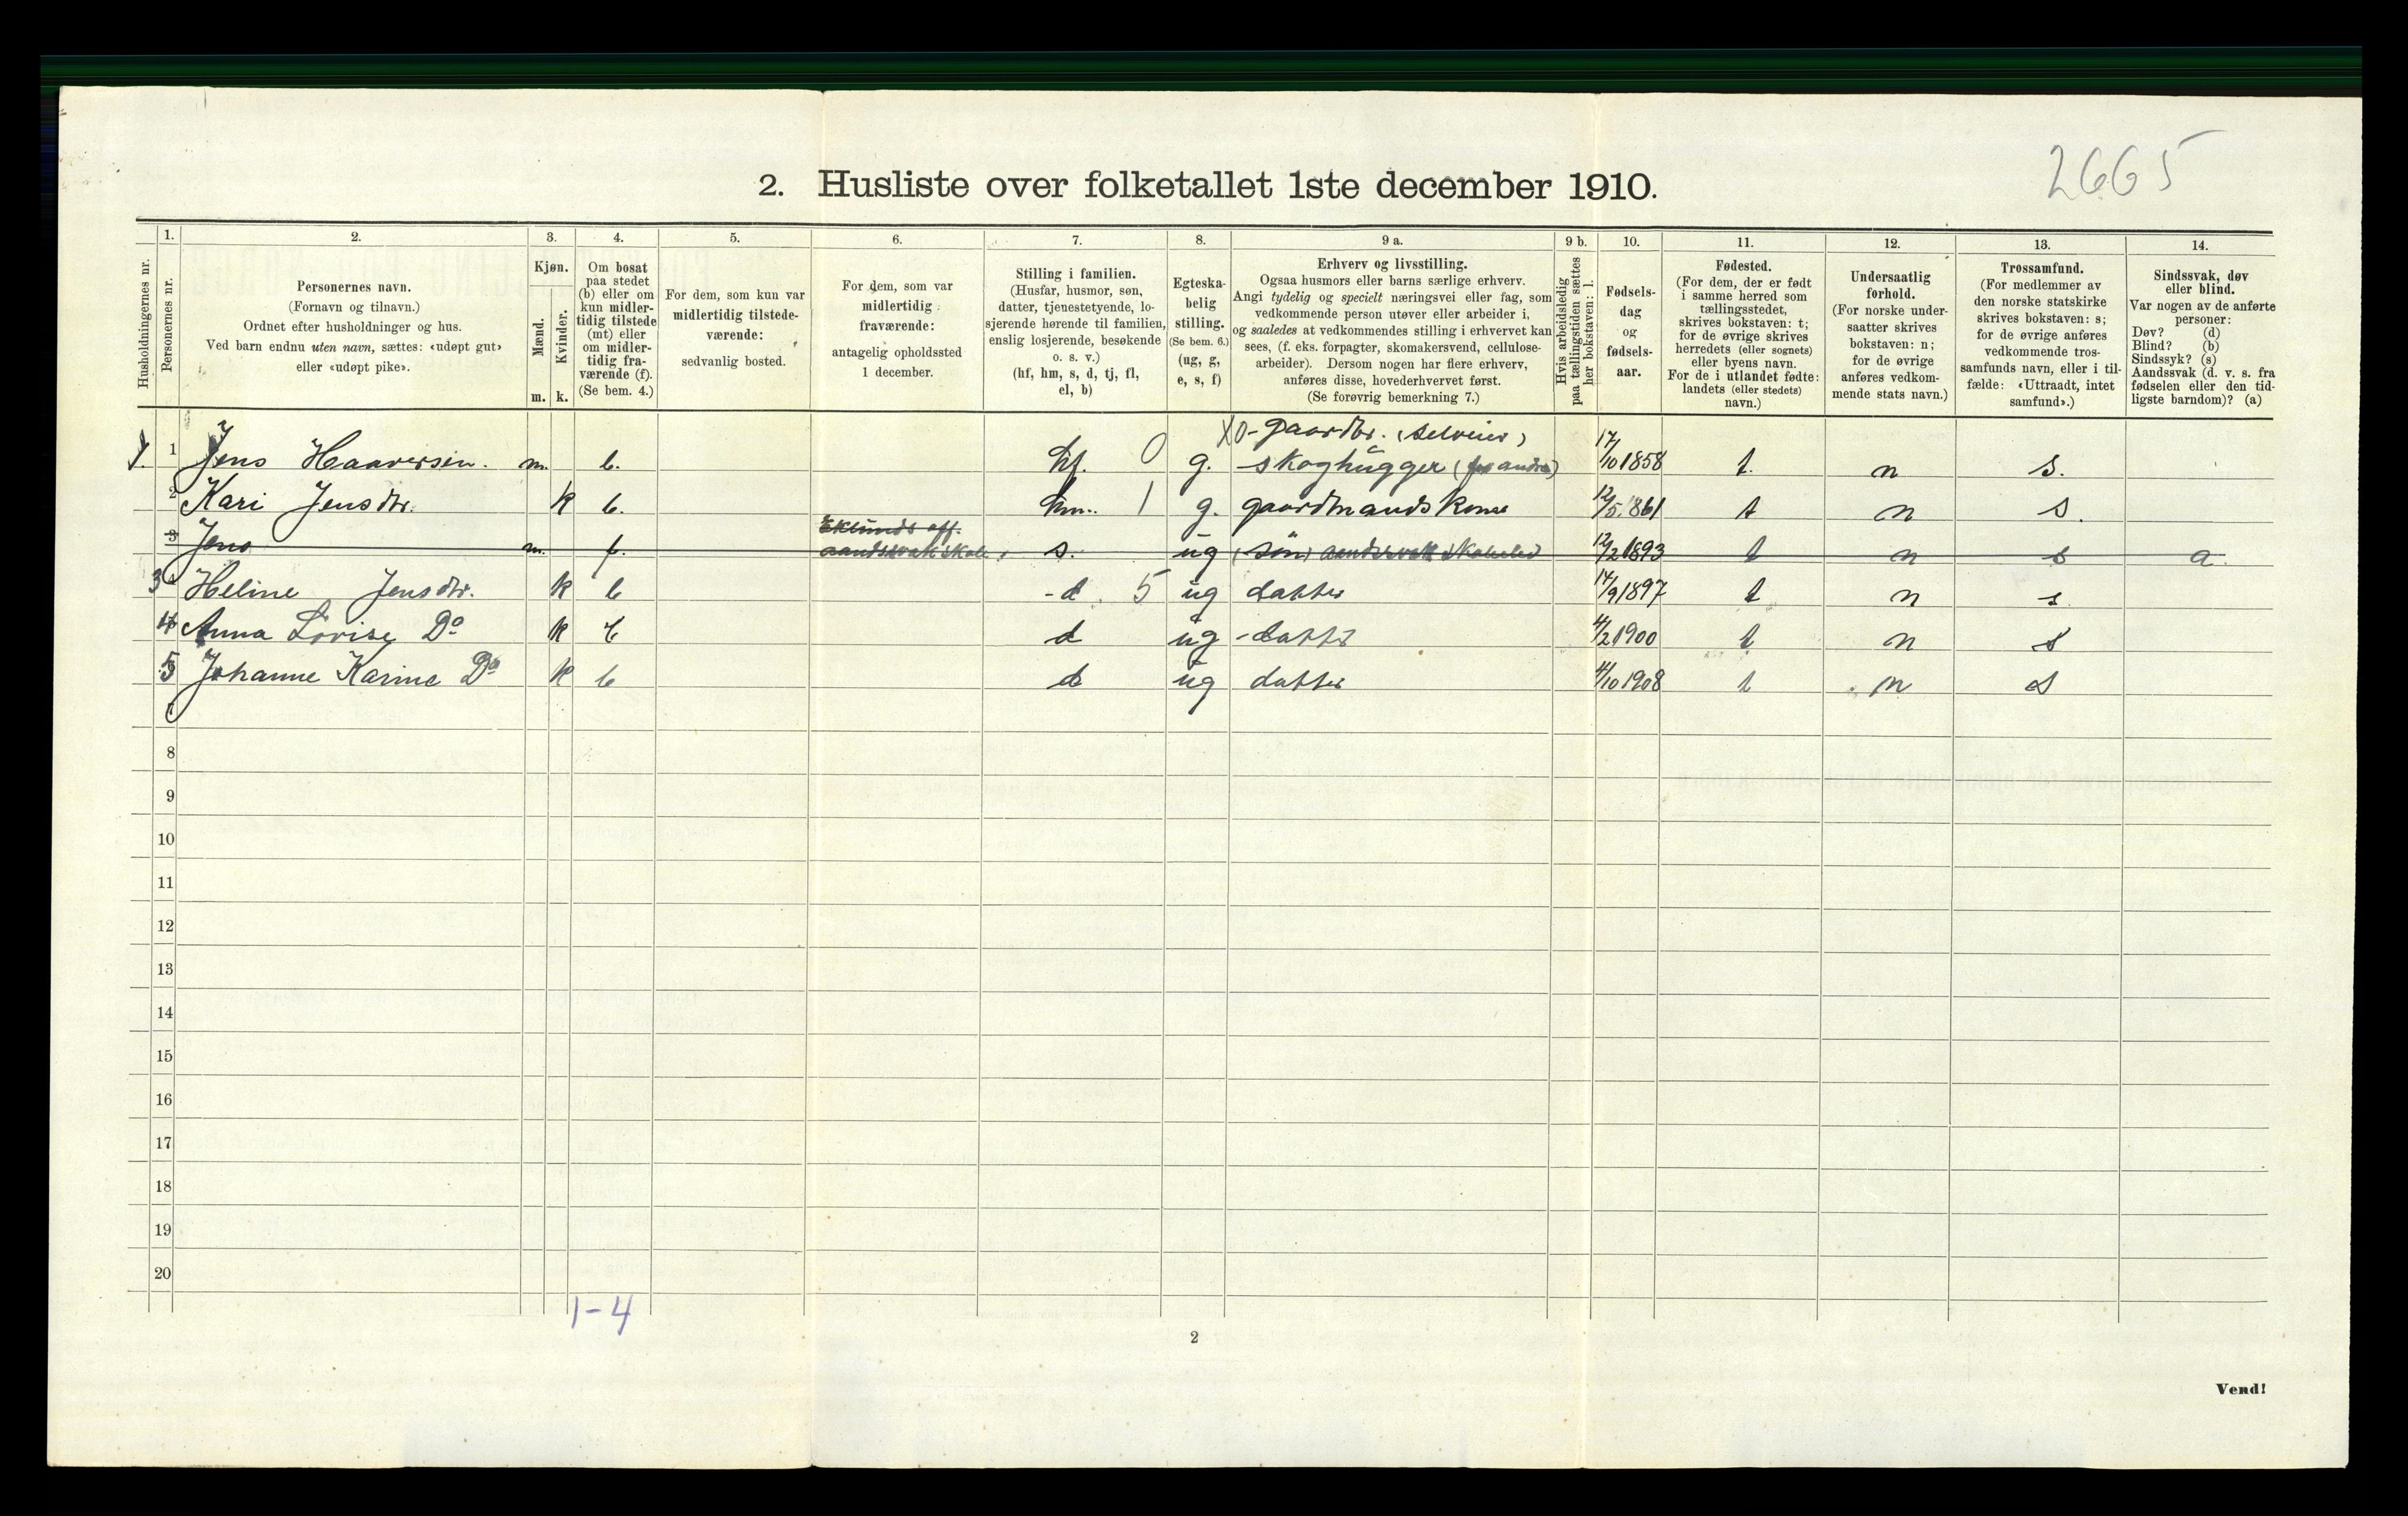 2665
2. Husliste over folketallet 1ste december 1910.
Husholdningernes nr.
1.
Personernes nr.
2.
Personernes navn.
(Fornavn og tilnavn.)
Ordnet efter husholdninger og hus.
Ved barn endnu uten navn, sættes: «udøpt gut»
eller «udøpt pike».
3.
Kjøn.
Mænd.
Kvinder.
m. k.
4.
Om bosat
paa stedet
(b) eller om
kun midler-
tidig tilstede
(mt) eller
om midler-
tidig fra-
værende (f).
(Se bem. 4.)
5.
For dem, som kun var
midlertidig tilstede-
værende:
sedvanlig bosted.
6.
For dem, som var
midlertidig
fraværende:
antagelig opholdssted
1 december.
7.
Stilling i familien.
(Husfar, husmor, søn,
datter, tjenestetyende, lo-
sjerende hørende til familien,
enslig losjerende, besøkende
o. s. v.)
(hf, hm, s, d, tj, fl,
el, b)
8.
Egteska-
belig
stilling.
(Se bem. 6.)
(ug, g,
e, s, f)
9 a.
Erhverv og livsstilling.
Ogsaa husmors eller barns særlige erhverv.
Angi tydelig og specielt næringsvei eller fag, som
vedkommende person utøver eller arbeider i,
og saaledes at vedkommendes stilling i erhvervet kan
sees, (f. eks. forpagter, skomakersvend, cellulose-
arbeider). Dersom nogen har flere erhverv,
anføres disse, hovederhvervet først.
(Se forøvrig bemerkning 7.)
9 b.
Hvis arbeidsledig
paa tællingstiden sættes
her bokstaven: l.
10.
Fødsels-
dag
og
fødsels-
aar.
11.
Fødested.
(For dem, der er født
i samme herred som
tællingsstedet,
skrives bokstaven: t;
for de øvrige skrives
herredets (eller sognets)
eller byens navn.
For de i utlandet fødte:
landets (eller stedets)
navn.)
12.
Undersaatlig
forhold.
(For norske under-
saatter skrives
bokstaven: n;
for de øvrige
anføres vedkom-
mende stats navn.)
13.
Trossamfund.
(For medlemmer av
den norske statskirke
skrives bokstaven: s;
for de øvrige anføres
vedkommende tros-
samfunds navn, eller i til-
fælde: «Uttraadt, intet
samfund».)
14.
Sindssvak, døv
eller blind.
Var nogen av de anførte
personer:
Døv? (d)
Blind? (b)
Sindssyk? (s)
Aandssvak (d. v. s. fra
fødselen eller den tid-
ligste barndom)? (a)
X0-gaardbr. (selveier)
1 Jens Haaversen. m. b. hf. 0 g. skoghugger (for andre) 17/10 1858 t. n s.
2 Kari Jensdtr. k b. hm. 1 g. gaardmandskone 12/5 1861 t n s.
Eklunds off.
3 Jens m. f. aandssvakskole, s. ug (søn) aandssvak skoleelev 12/2 1893 t n s a.
3 Heline Jensdtr. k b d. 5 ug datter 14/9 1897 t n s
4 Anna Lovise Do k b d ug datter 4/2 1900 t n s
5 Johanne Karine Do k b d ug datter 4/10 1908 t n s
8
9
10
11
12
13
14
15
16
17
18
19
20
1-4
2
Vend!